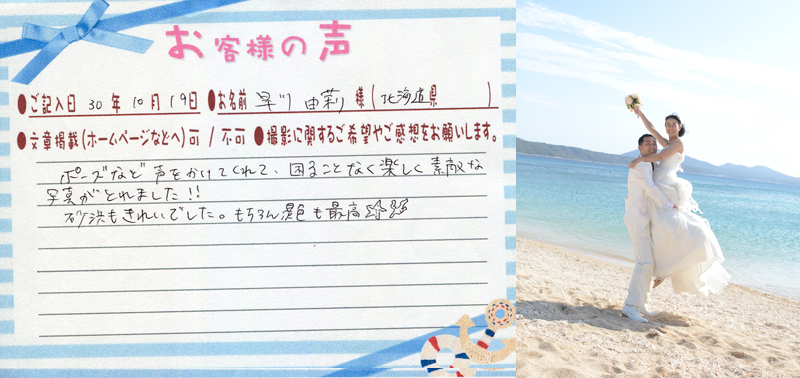 お客様の声
●ご記入日 30年 10月 19日 ●お名前 早川 由莉 様(北海道県 )
●文章掲載(ホームページなどへ)可 / 不可 ●撮影に関するご希望やご感想をお願いします。
ポーズなど声をかけてくれて、困ることなく楽しく素敵な
写真がとれました!!
砂浜もきれいでした。もちろん景色も最高☆彡